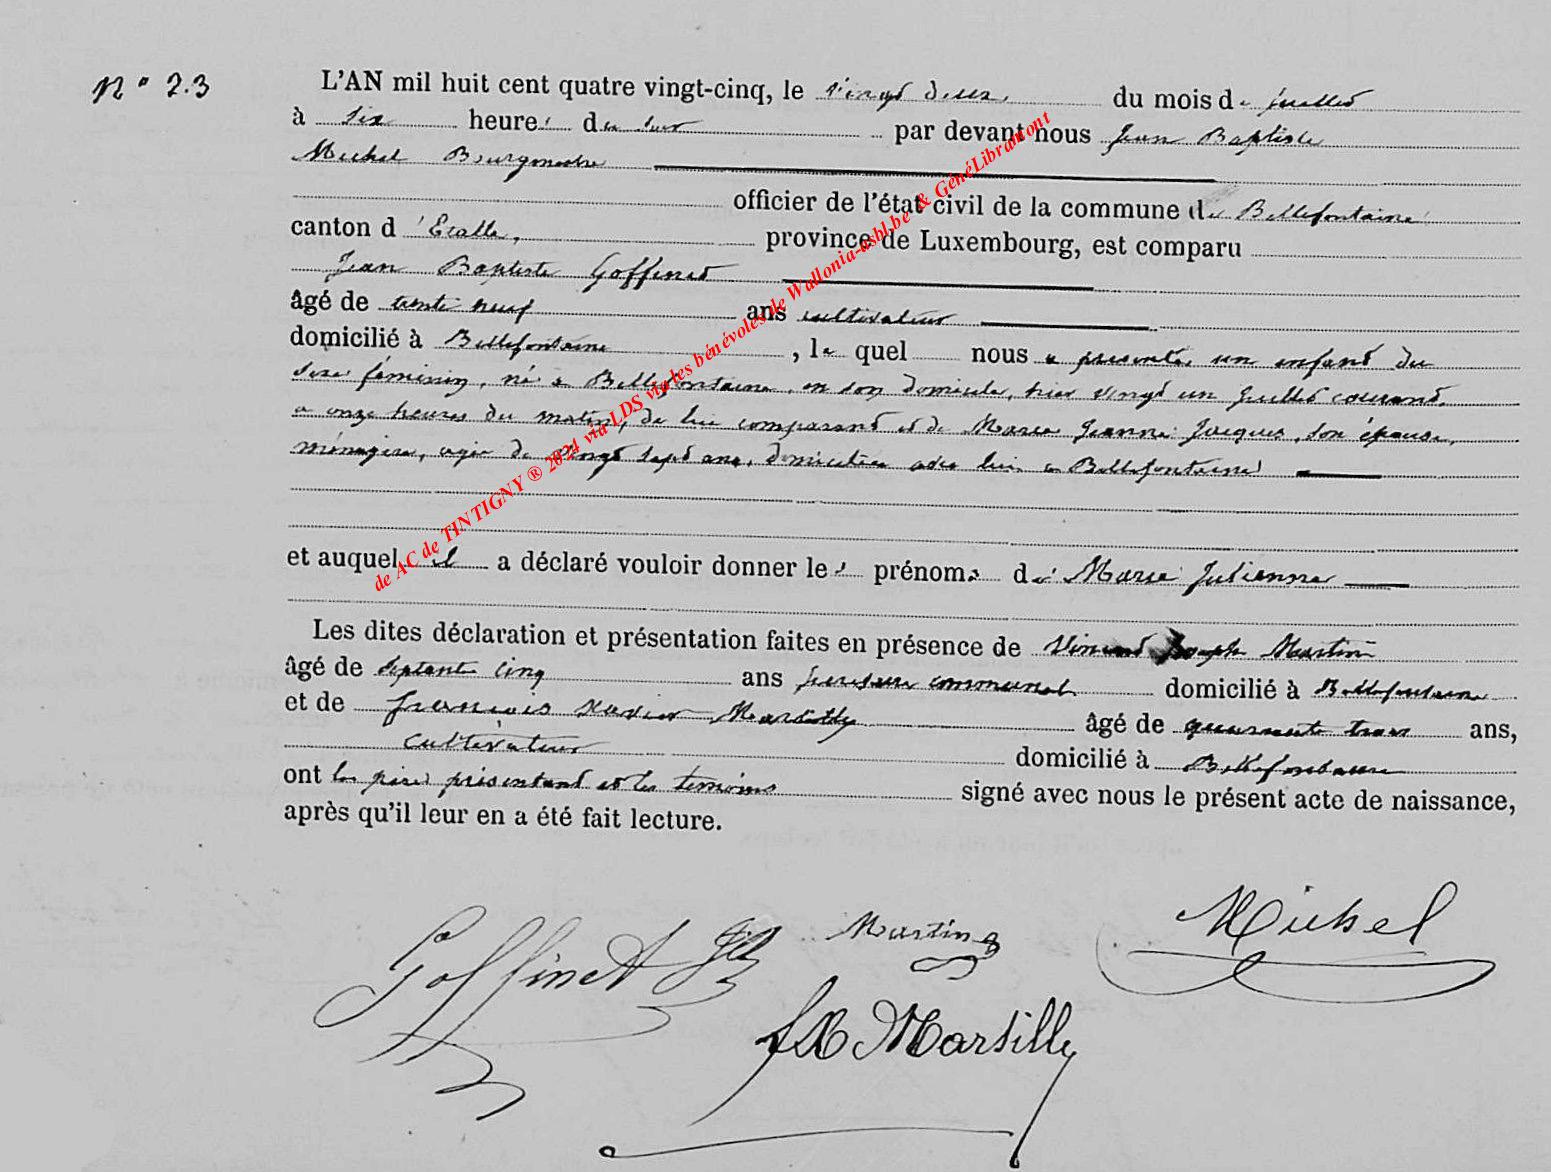 N° 23
L'AN mil huit cent quatre vingt-cinq, le vingt deux du mois de juillet
à six heures du soir par devant nous Jean Baptiste
Michel Bourgmestre
officier de l'état civil de la commune de Bellefontaine
canton d'Etalle, province de Luxembourg, est comparu
Jean Baptiste Goffinet
âgé de trente neuf ans cultivateur
domicilié à Bellefontaine, lequel nous a présenté un enfant du
sexe féminin, né à Bellefontaine, en son domicile, hier vingt un juillet courant,
à onze heures du matin, de lui comparant et de Marie Jeanne Jacques, son épouse,
ménagère, agée de vingt sept ans, domiciliée avec lui à Bellefontaine
et auquel il a déclaré vouloir donner les prénoms de Marie Julienne
Les dites déclaration et présentation faites en présence de Vincent Joseph Martin
âgé de septante cinq ans receveur communal domicilié à Bellefontaine
et de François Xavier Marsilly âgé de quarante trois ans,
cultivateur domicilié à Bellefontaine
ont le père présentant et les témoins signé avec nous le présent acte de naissance,
après qu'il leur en a été fait lecture.
Goffinet JB Martin Michel
FX Marsilly
de AC de TINTIGNY ® 2024 via LDS via les bénévoles de Wallonia-asbl.be & GénéLibramont